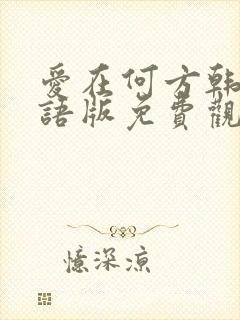 愛在何方韩
語版免費觀
憶深涼